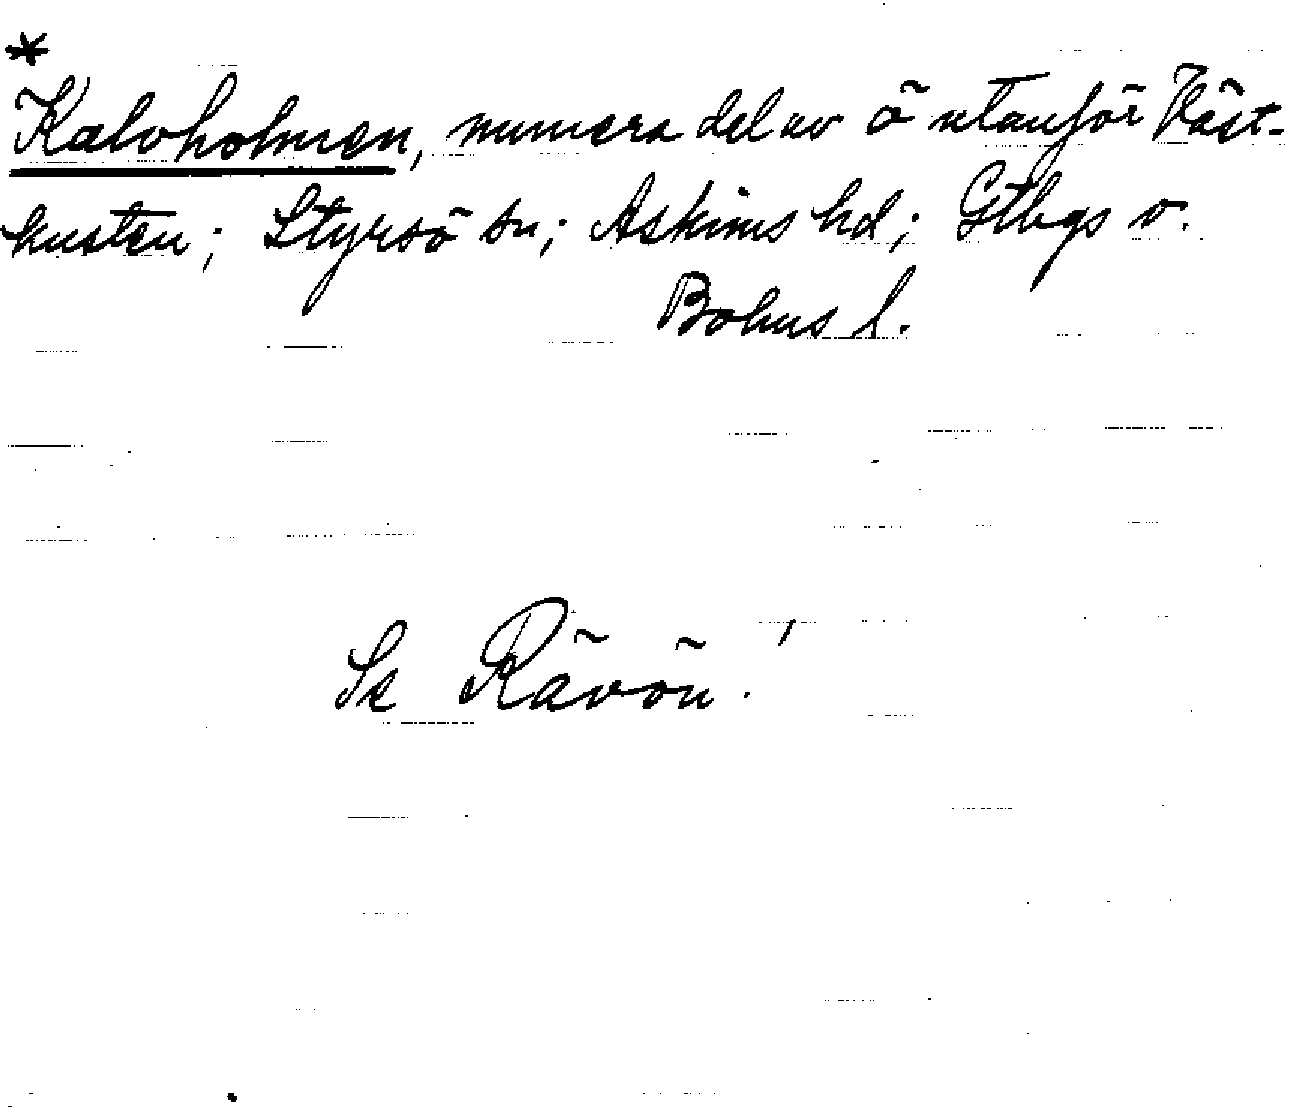 *
Kalvholmen, numera del av ö utanför Väst-
kusten; Styrsö sn; Askims hd; Gtbgs o.
Bohus l.
Se Rävön!